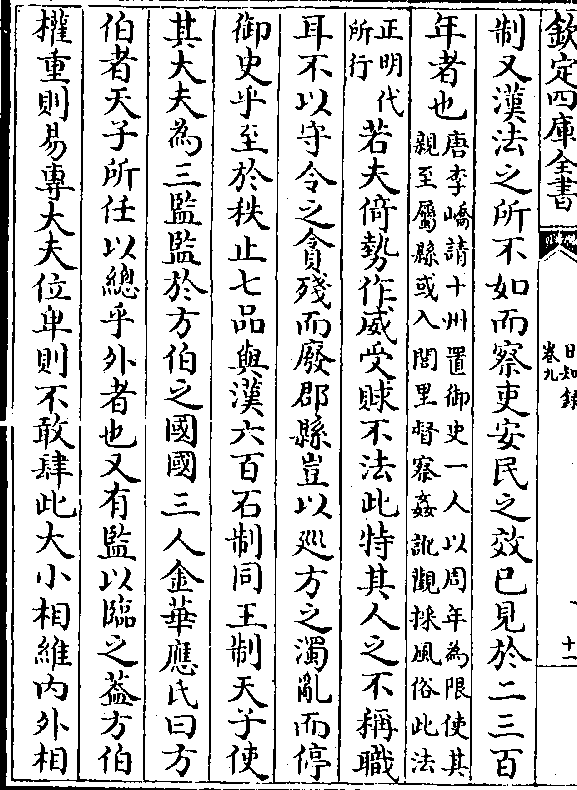 欽定四庫全書
日知錄
卷九
十一
制又漢法之所不如而察吏安民之效已見於二三百
年者也
唐李嶠請十州置御史一人以周年為限使其
親至屬縣或入閭里督察姦訛觀採風俗此法
正明代
所行
若夫倚勢作威受賕不法此特其人之不稱職
耳不以守令之貪殘而廢郡縣豈以巡方之濁亂而停
御史乎至於秩止七品與漢六百石制同王制天子使
其大夫為三監監於方伯之國國三人金華應氏曰方
伯者天子所任以總乎外者也又有監以臨之葢方伯
權重則易專大夫位卑則不敢肆此大小相維内外相